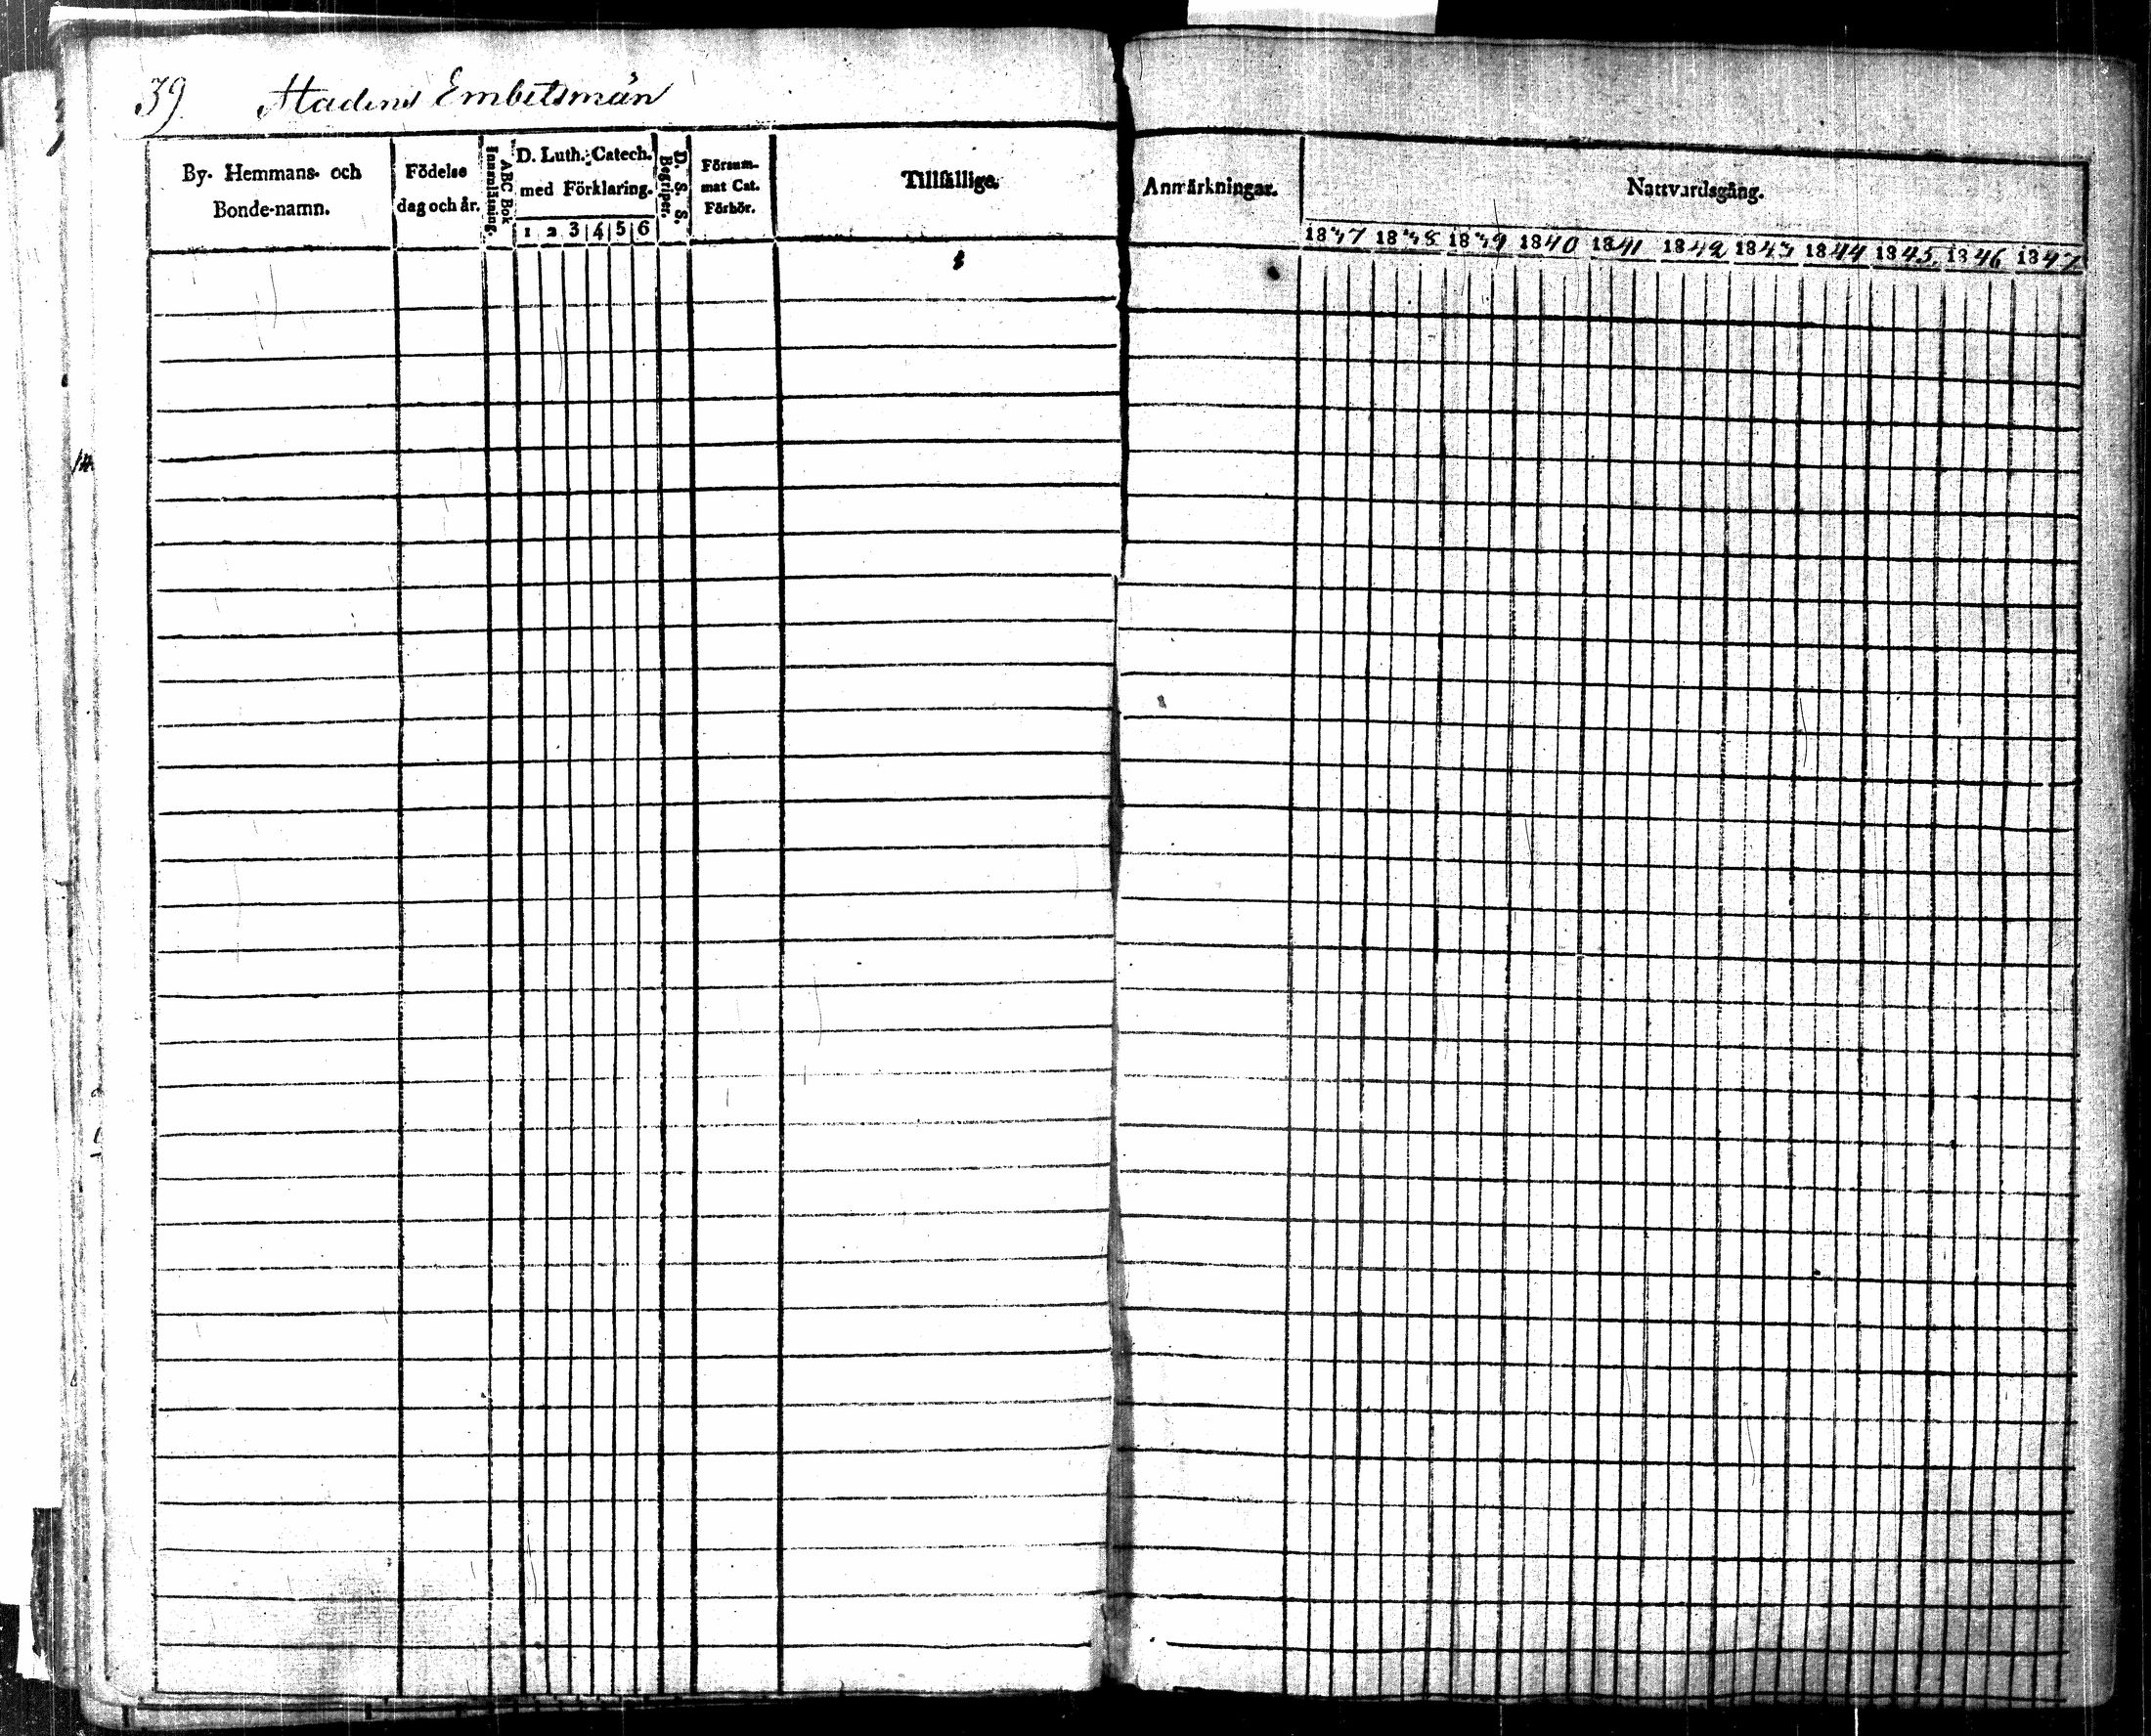 39. Stadens Embetsmän
By- Hemmans- och
Bonde-namn.
Födelse
dag och år.
ABC Bok
Innanläsning.
D. Luth. Catech.
med Förklaring.
1 2 3 4 5 6
D. S. S.
Begriper.
Försum-
mat Cat.
Förhör.
Tillfällige.
Anmärkningar.
Nattvardsgång.
1837 1838 1839 1840 1841 1842 1843 1844 1845. 1846 1847